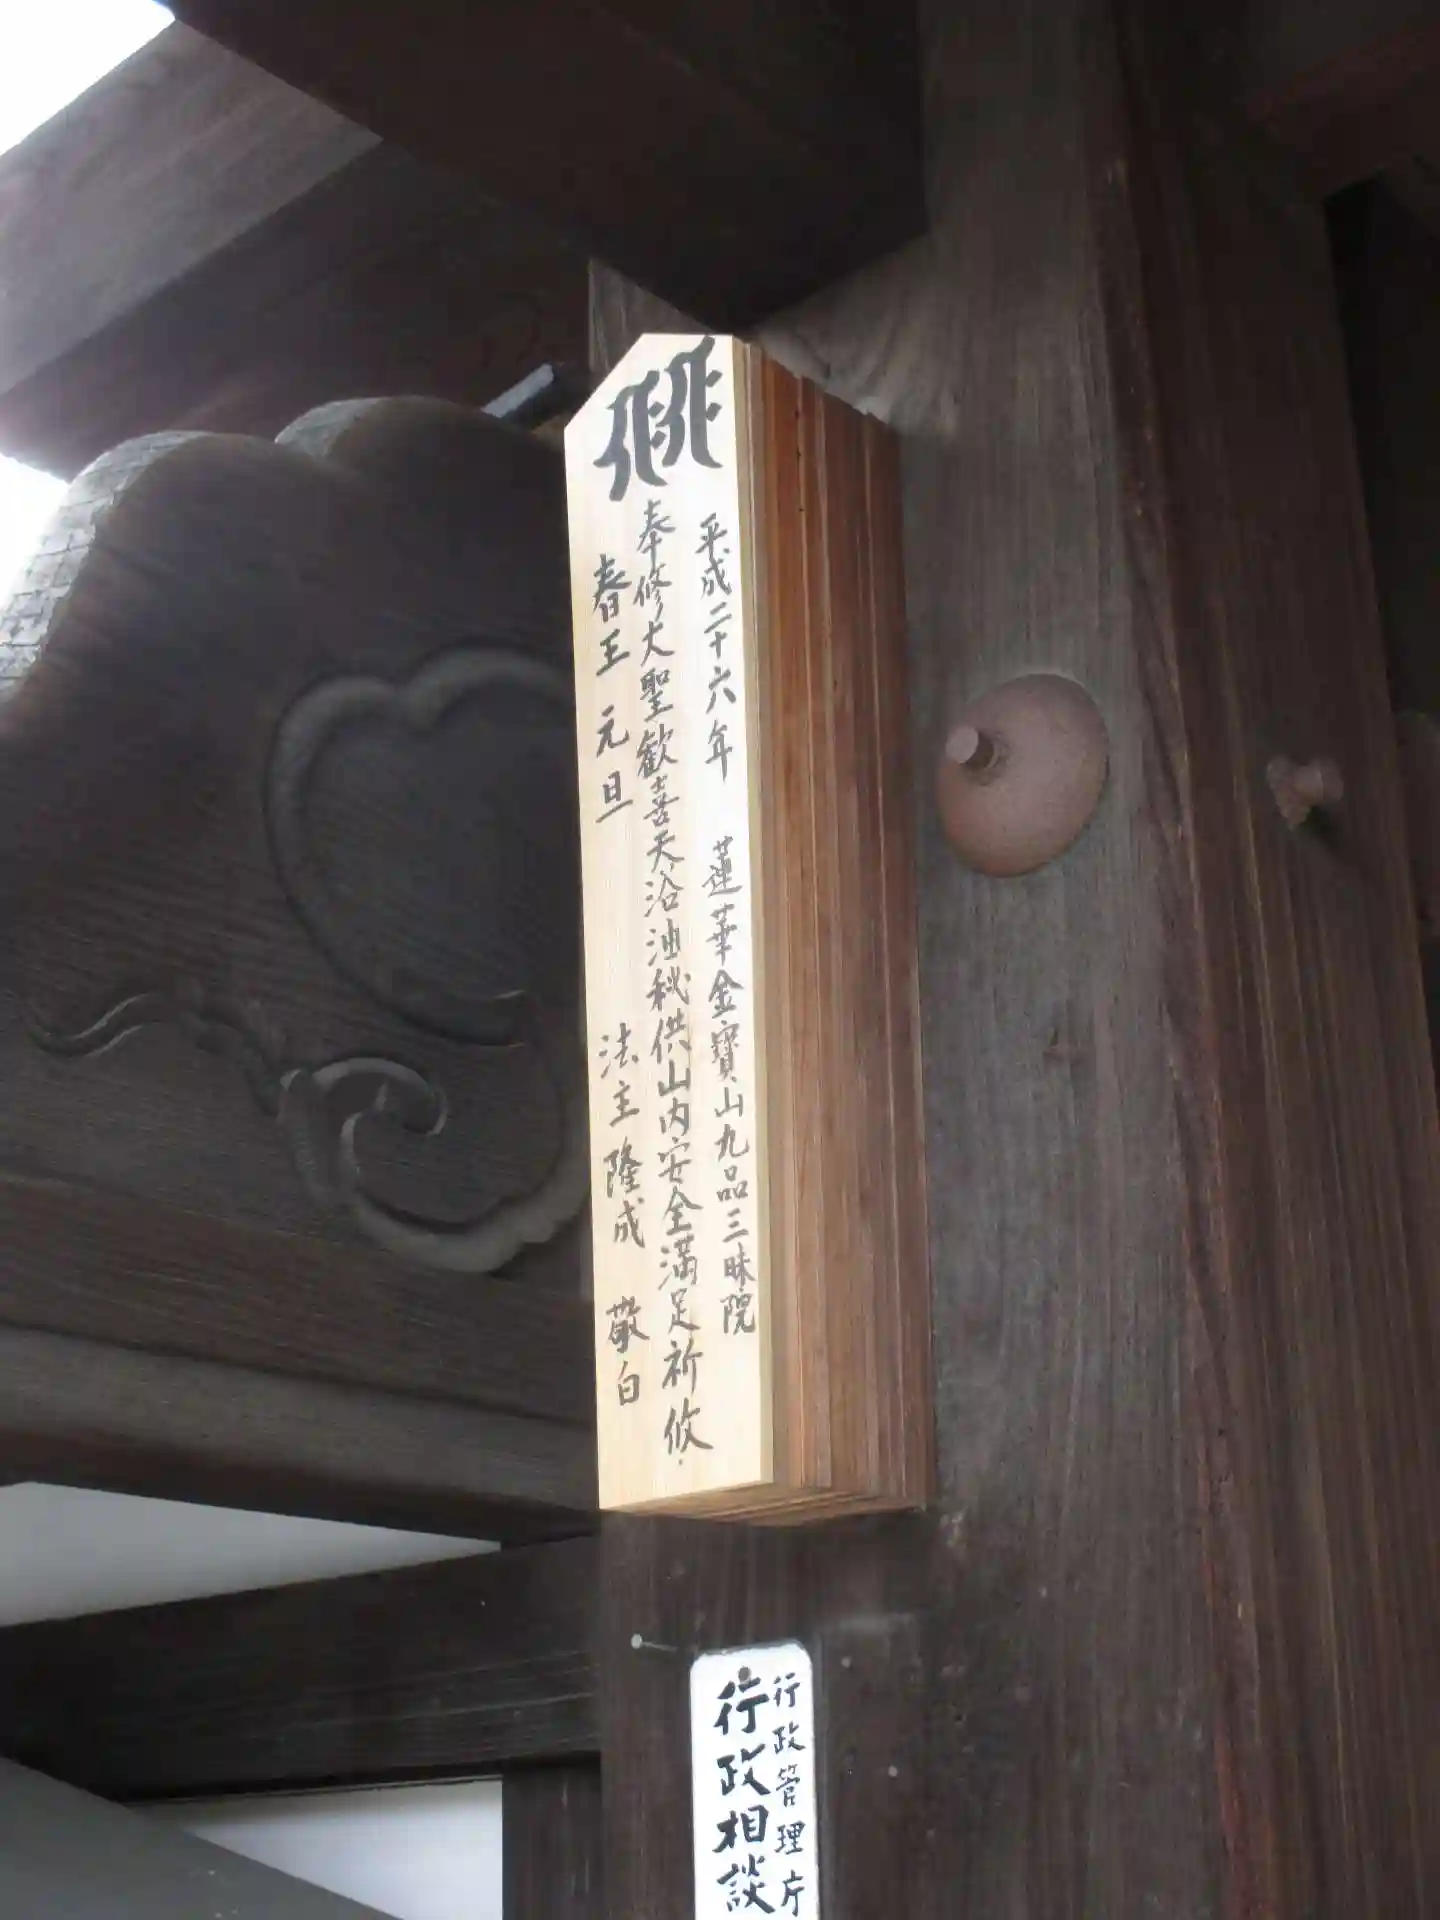 平成二十六年 蓮華金寶山九品三昧院
奉修大聖歓喜天浴油秘供山内安全滿足祈攸
春王元旦 法主隆成 敬白
行政管理庁
行政相談